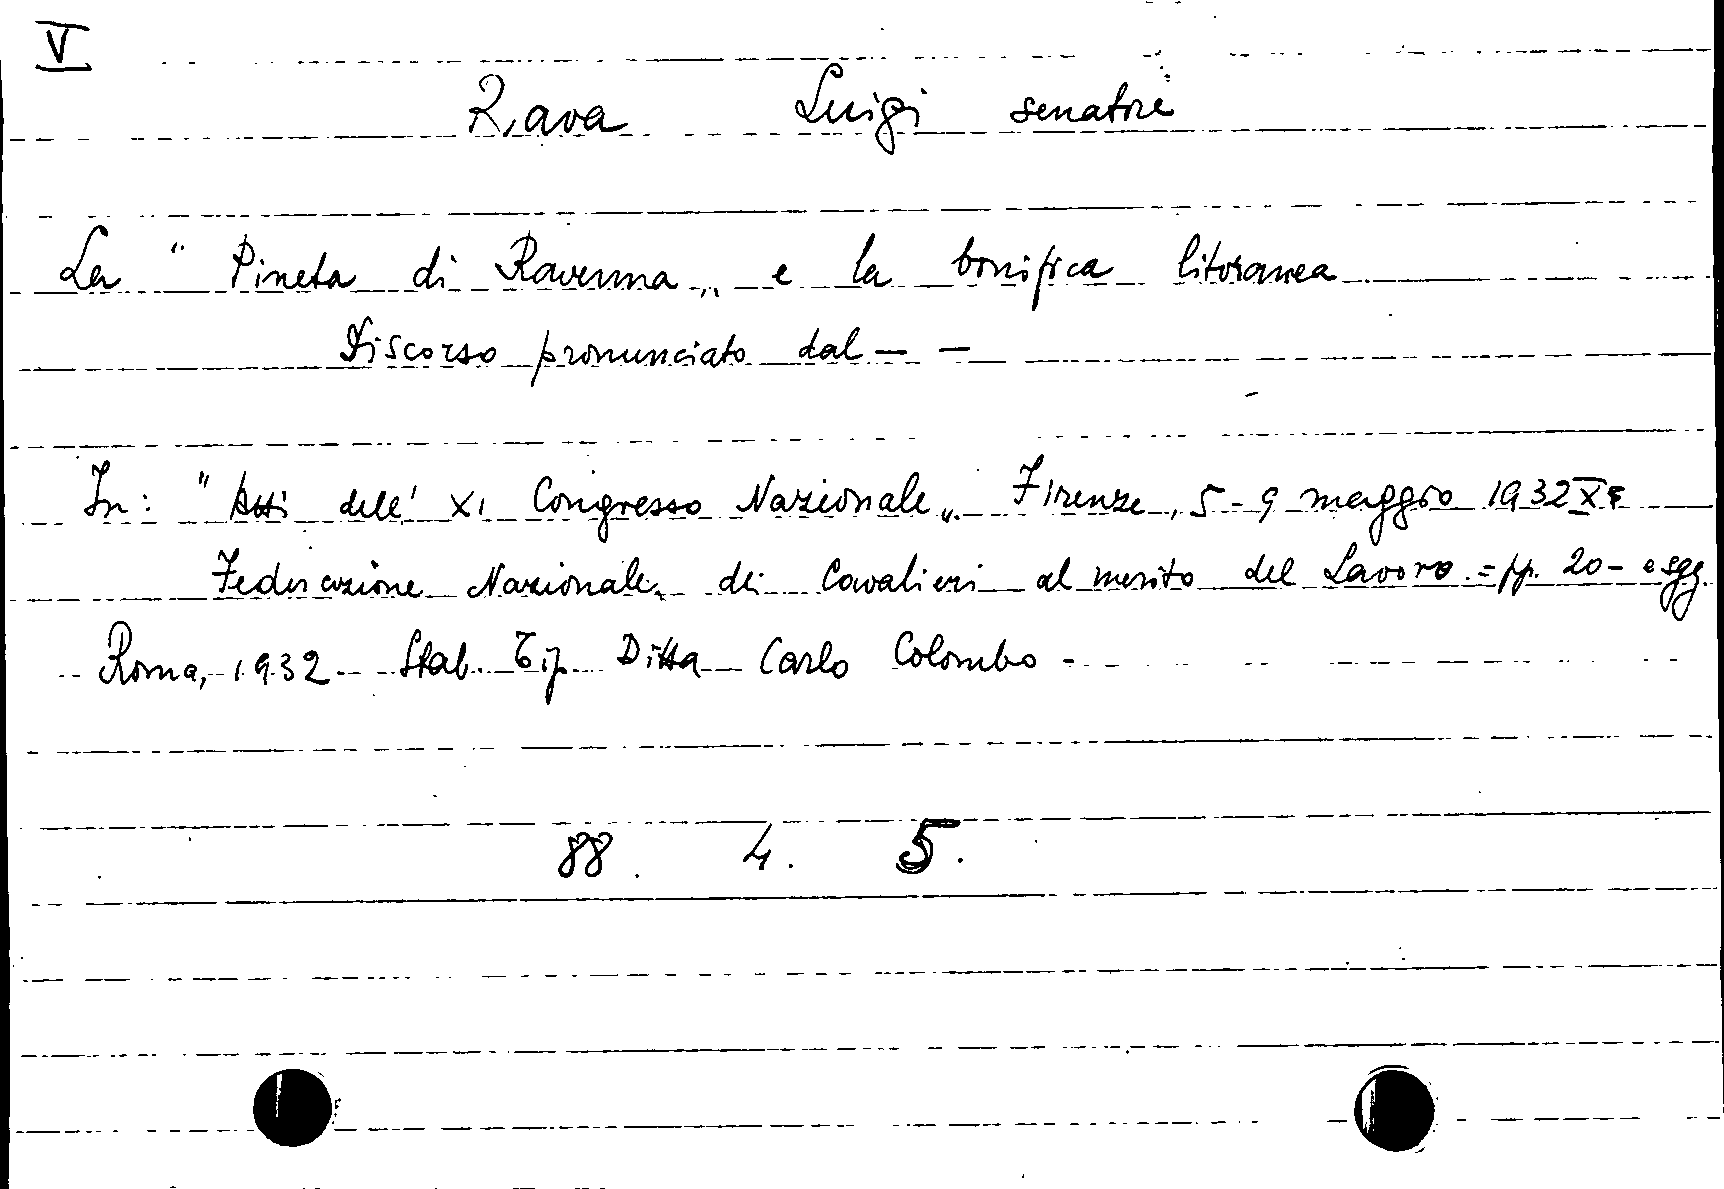 V
Rava Luigi senatore
La " Pineta di Ravenna „ e la bonifica litoranea
Discorso pronunciato dal — —
In: " Atti dell' XI Congresso Nazionale „ Firenze, 5-9 maggio 1932
Federazione Nazionale dei Cavalieri al merito del Lavoro = pp. 20 - e sgg.
Roma, 1932 Stab. Tip. Ditta Carlo Colombo -
88. 4. 5.